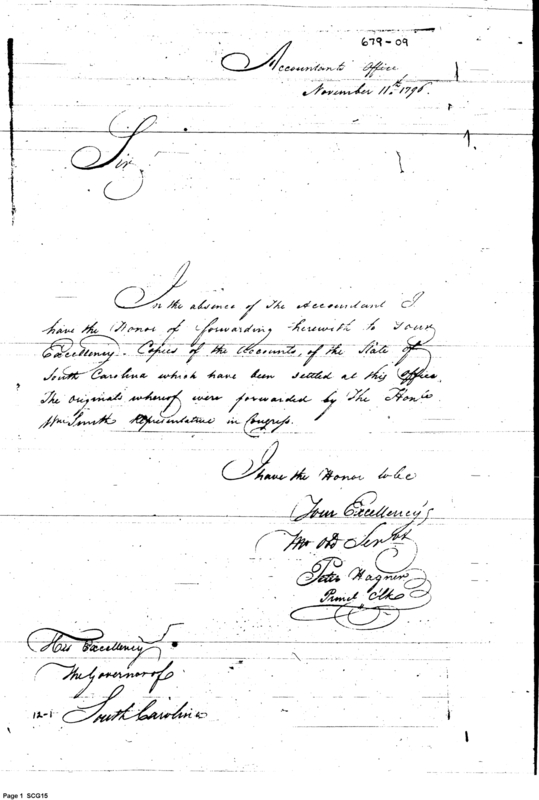 679-09
Accountants Office
November 11th 1796.
1.
Sir
In the absence of The Accountant I
have the Honor of forwarding herewith to Your
Excellency. Copies of the Accounts, of the State of
South Carolina which have been settled at this Office,
The originals whereof were forwarded by The Honle
Wm Smith Representative in Congress.
I have the Honor to be
Your Excellency's
Mo Obd Servt
Peter Hagner
Princl Clk
His Excellency
The Governor of
South Carolina
12-1
Page 1 SCG15